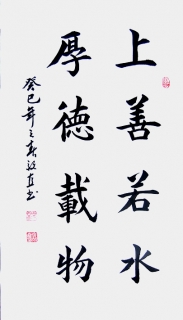 上善若水
厚德載物
癸巳年之春